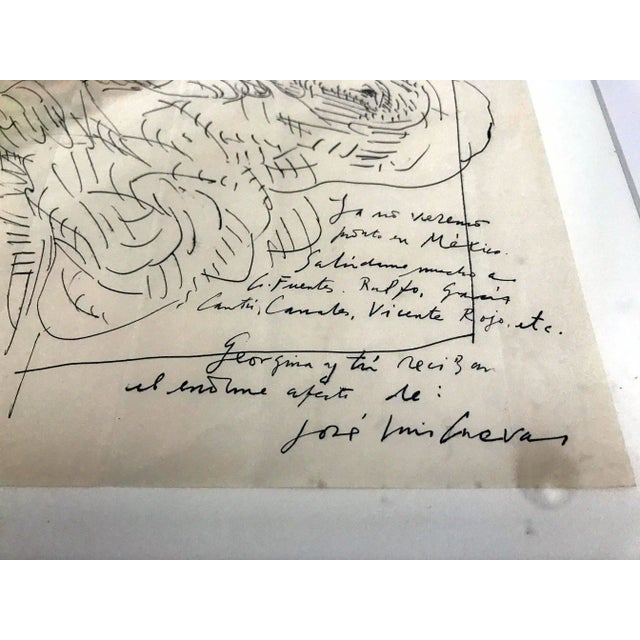 Ya nos veremos
pronto en México.
Salúdame mucho a
C. Fuentes, Rulfo, García
Cantú, Canales, Vicente Rojo, etc.
Georgina y tú reciban
el enorme afecto de:
José Luis Cuevas